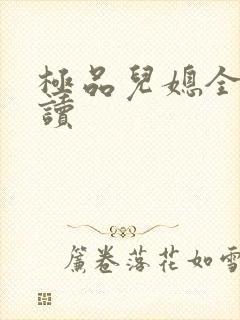 極品兒媳全
讀
簾卷落花如雪